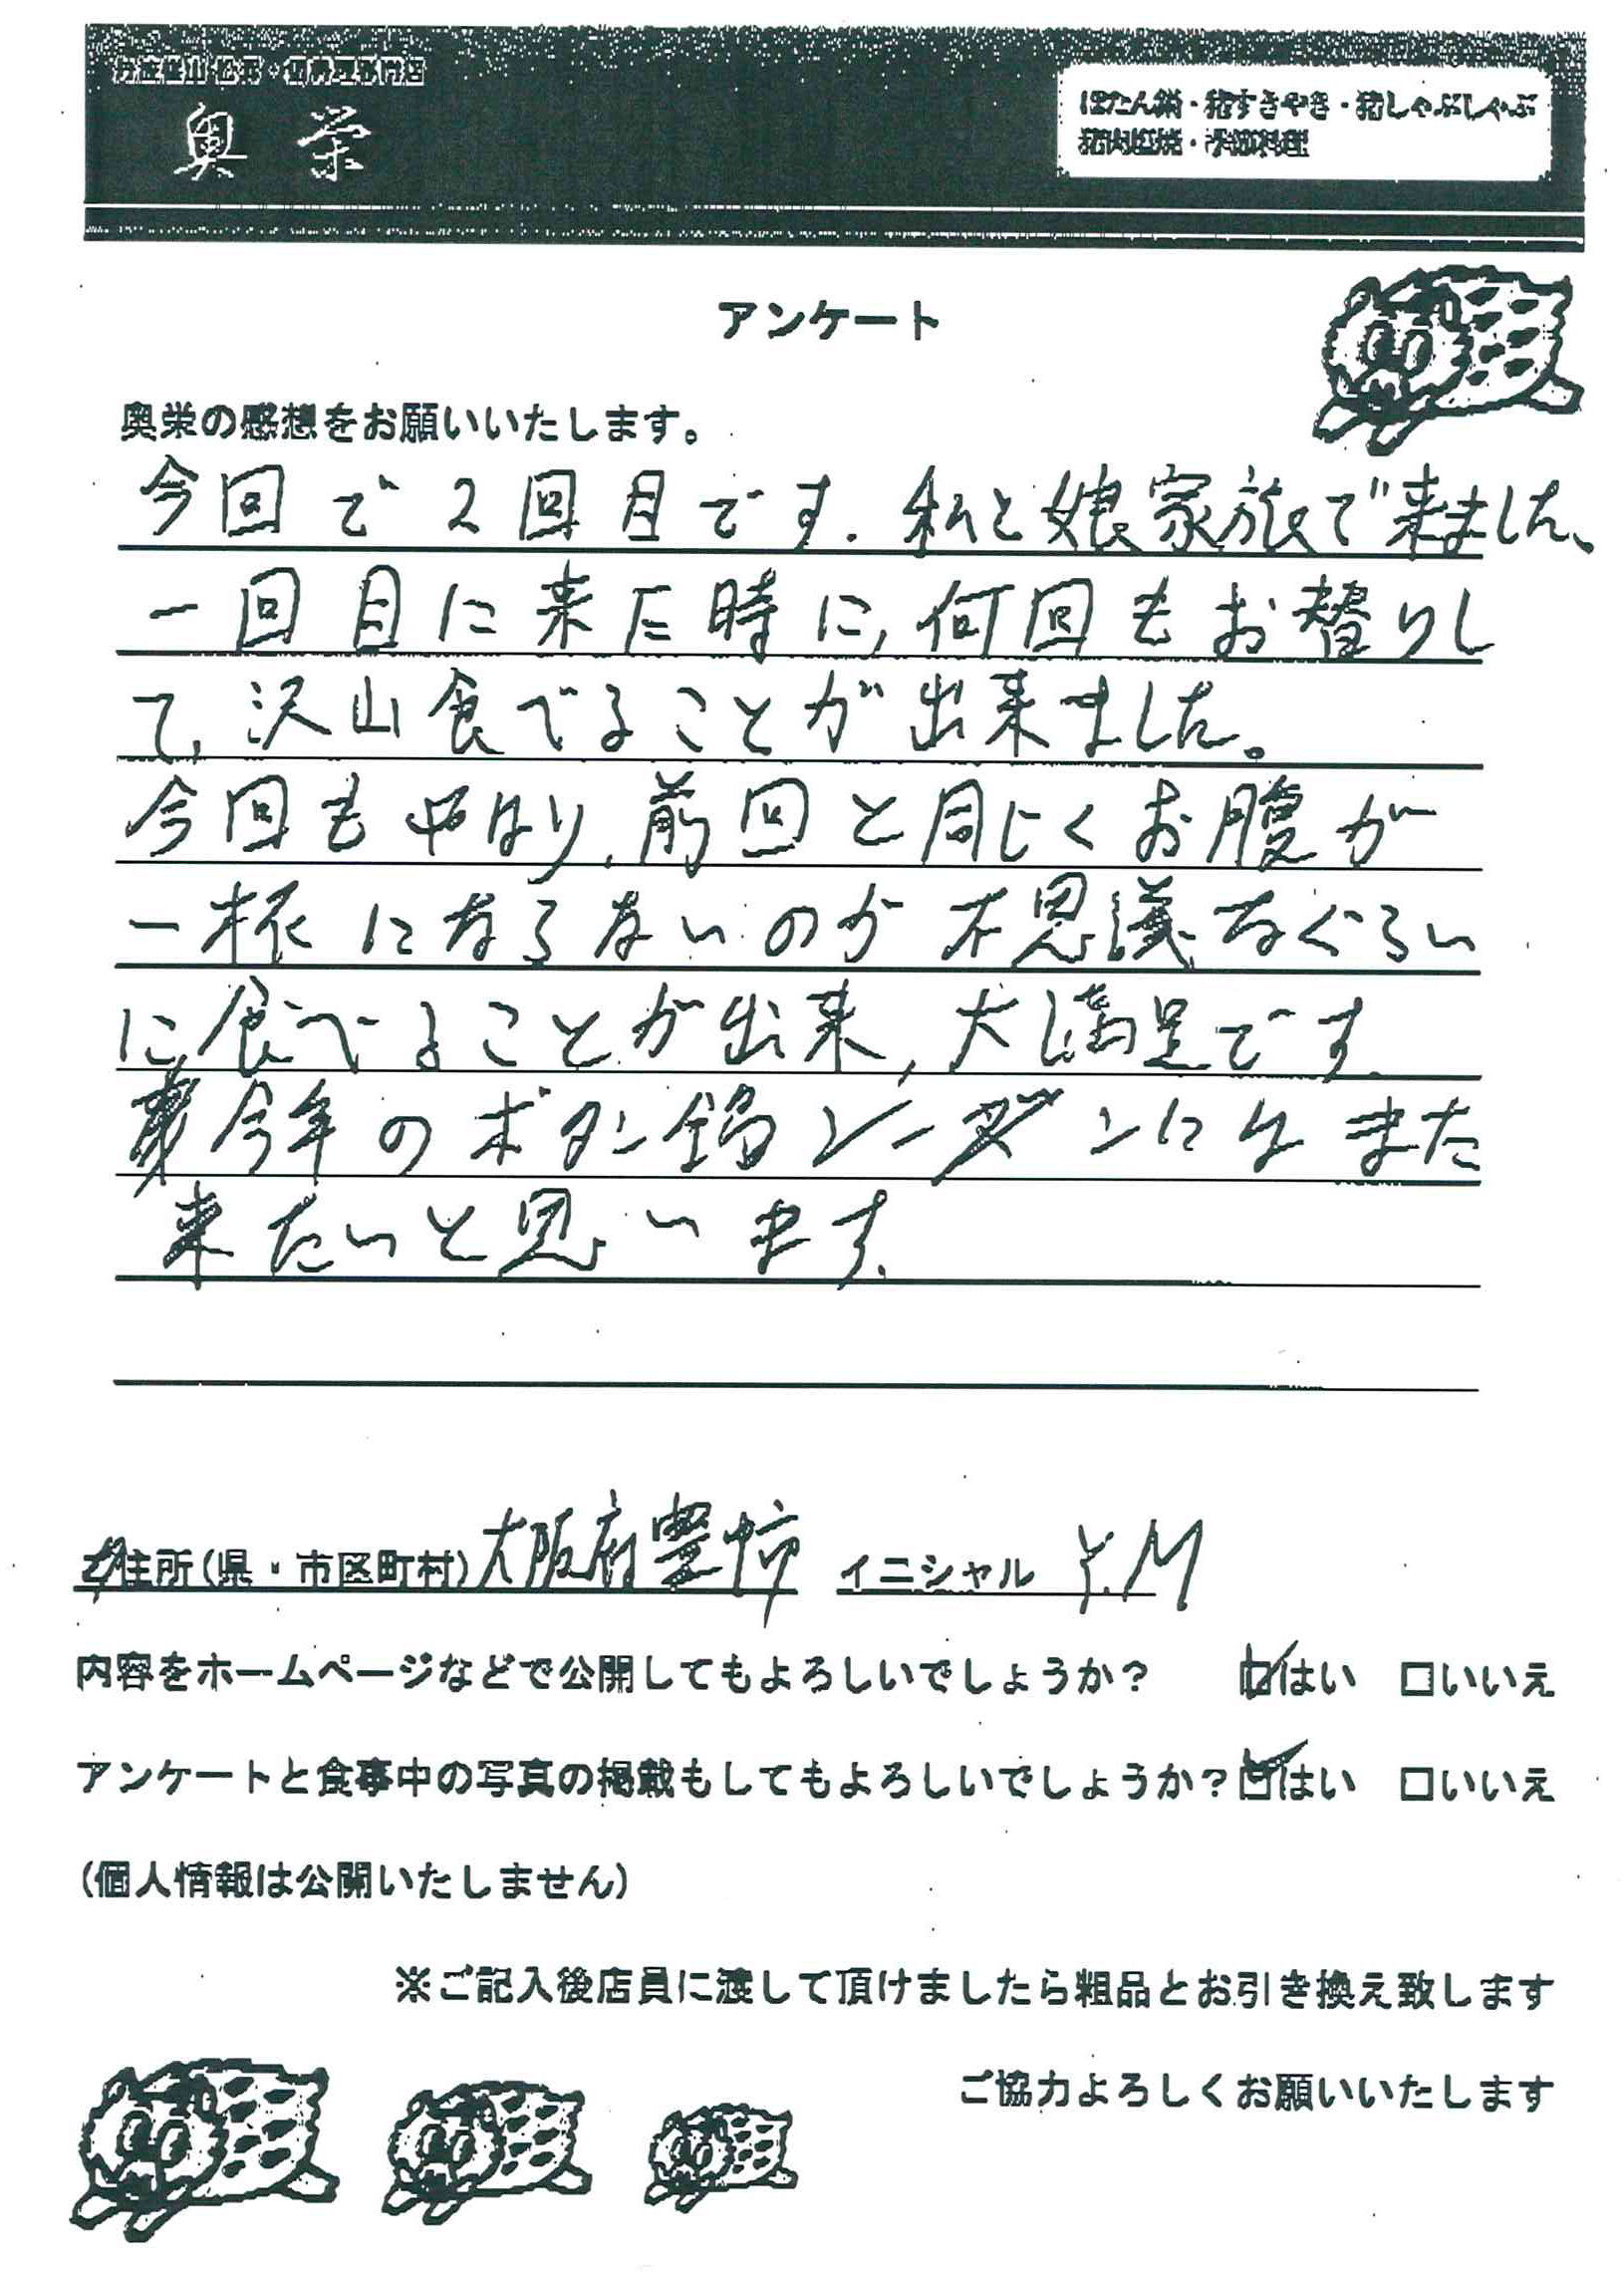 丹波篠山 松茸・猪料理専門店
奥栄
ぼたん鍋・猪すきやき・猪しゃぶしゃぶ
猪肉塩焼・季節料理
アンケート
奥栄の感想をお願いいたします。
今回で2回目です。私と娘家族で来ました、
一回目に来た時に、何回もお替りし
て、沢山食べることが出来ました。
今回もやはり、前回と同じくお腹が
一杯にならないのか不思議なぐらい
に食べることが出来、大満足です。
今年のボタン鍋シーズンにはまた
来たいと思います。
ご住所(県・市区町村)大阪府豊中市 イニシャル Y.M
内容をホームページなどで公開してもよろしいでしょうか? ☑はい □いいえ
アンケートと食事中の写真の掲載もしてもよろしいでしょうか?☑はい □いいえ
(個人情報は公開いたしません)
※ご記入後店員に渡して頂けましたら粗品とお引き換え致します
ご協力よろしくお願いいたします